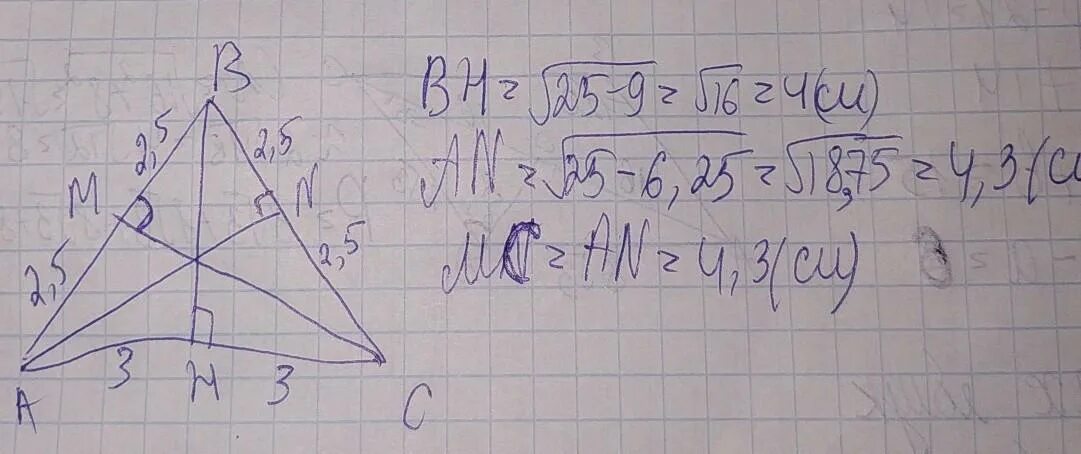 B
2,5
2,5
M
N
2,5
2,5
3
H
3
A
C
BH = √25-9 = √16 = 4(см)
AN = √25-6,25 = √18,75 = 4,3(см
MC = AN = 4,3(см)